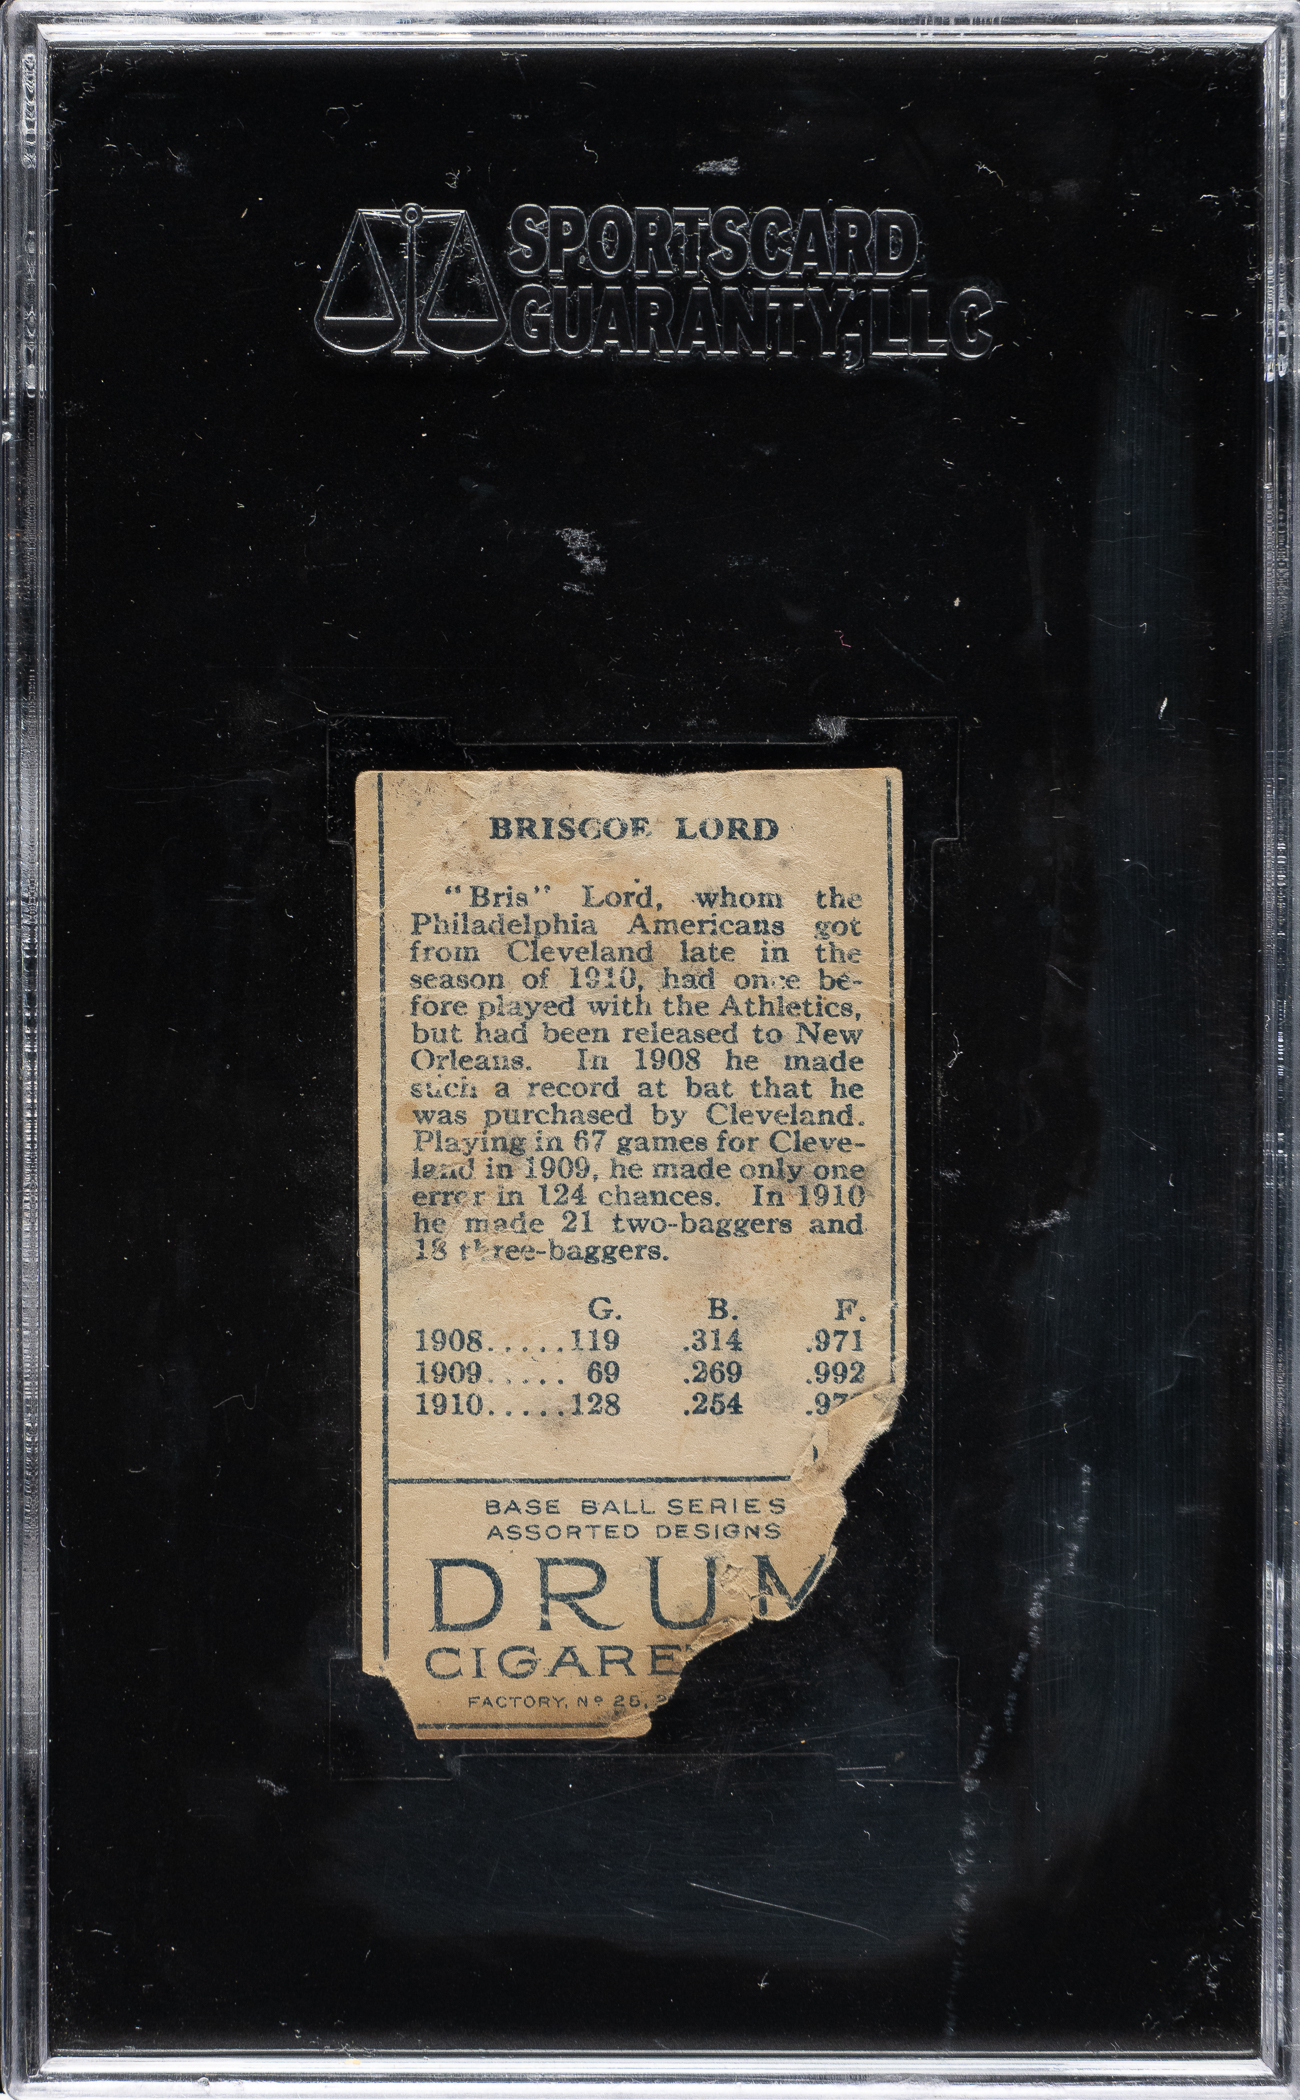 SPORTSCARD
GUARANTY, LLC
BRISCOE LORD
"Bris" Lord, whom the
Philadelphia Americans got
from Cleveland late in the
season of 1910, had once be-
fore played with the Athletics,
but had been released to New
Orleans. In 1908 he made
such a record at bat that he
was purchased by Cleveland.
Playing in 67 games for Cleve-
land in 1909, he made only one
error in 124 chances. In 1910
he made 21 two-baggers and
18 three-baggers.
G. B. F.
1908.....119 .314 .971
1909..... 69 .269 .992
1910.....128 .254 .97
BASE BALL SERIES
ASSORTED DESIGNS
DRUM
CIGARE
FACTORY, Nº 25, 2